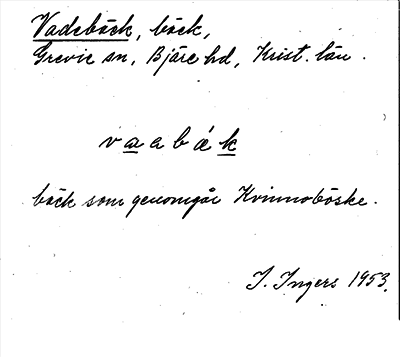 Vadebäck, bäck,
Grevie sn, Bjäre hd, Krist. län.
vaabák
bäck som genomgår Kvinnoböske.
I. Ingers 1953.